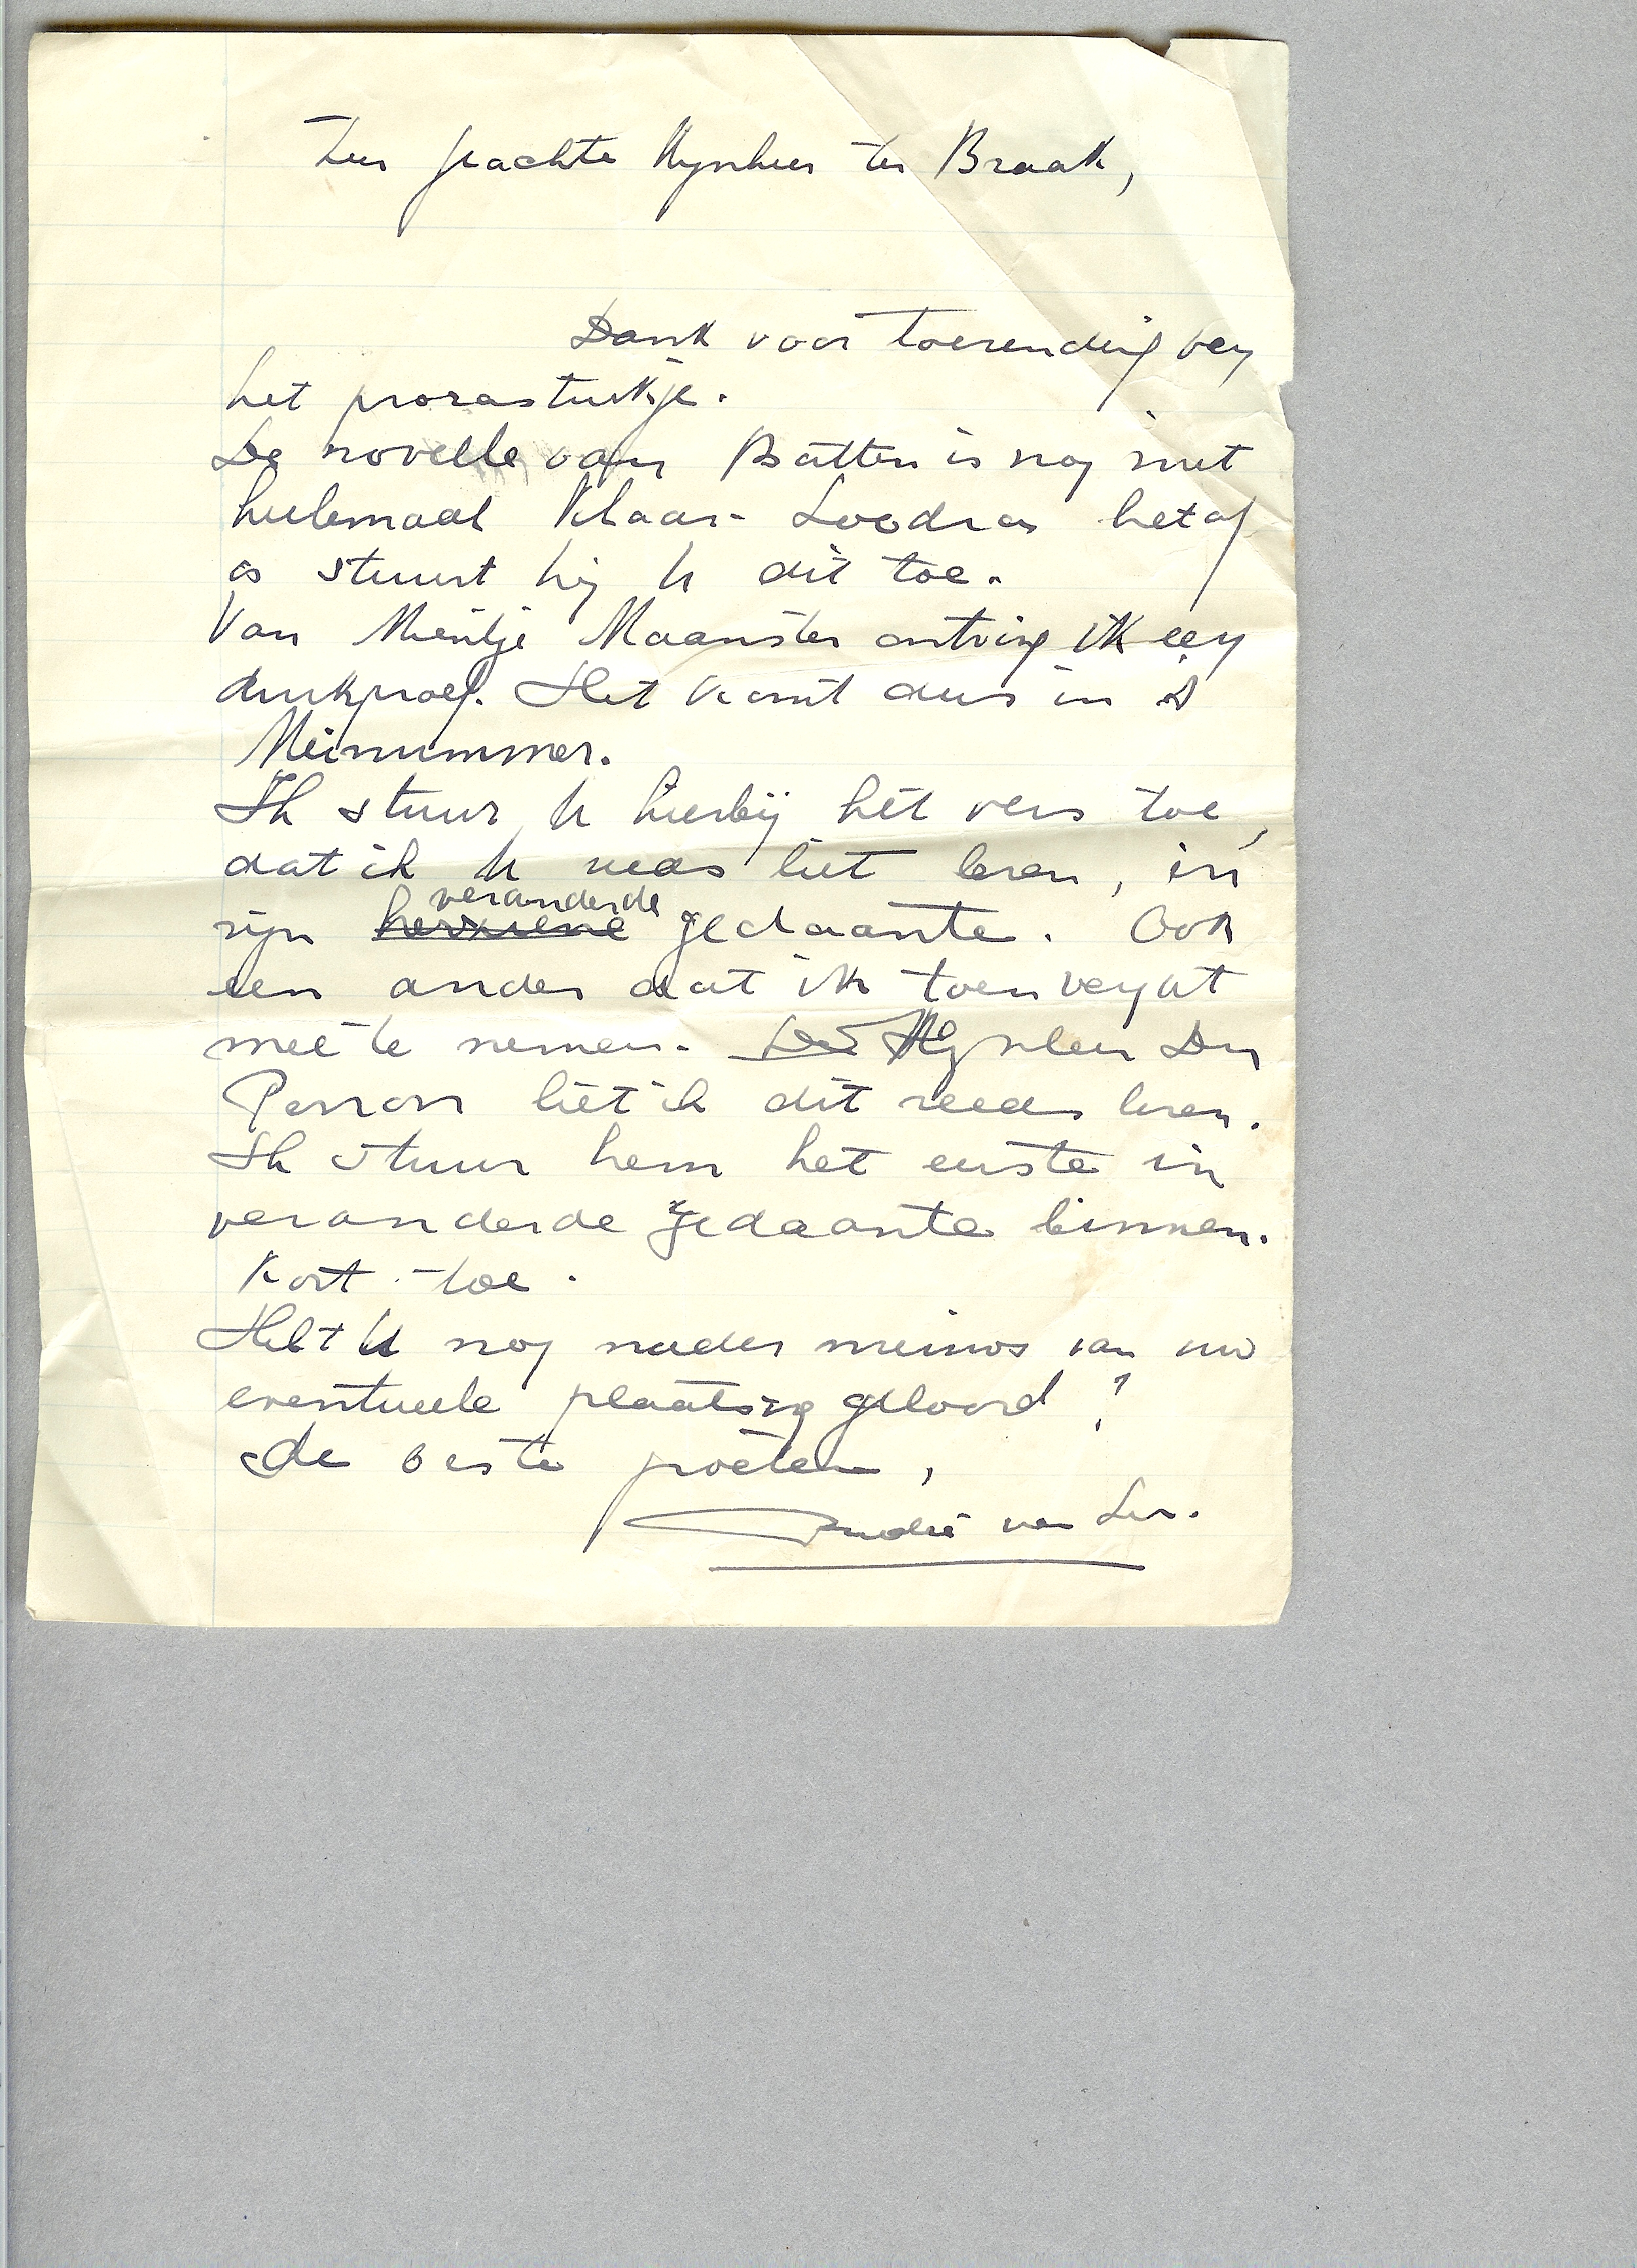 Zeer geachte Mynheer ter Braak,
Dank voor toezending van
het prozastukje.
De novelle van Batten is nog niet
heelemaal klaar. Zoodra het af
is stuurt hij U dit toe.
Van Mientje Maanster ontving ik een
drukproef. Het komt dus in 't
Meinummer.
Ik stuur U hierbij het vers toe,
dat ik U reeds liet lezen, in
zijn herziene veranderde gedaante. Ook
een ander dat ik toen vergat
mee te nemen. De Mijnheer Du
Perron liet ik dit reeds lezen.
Ik stuur hem het eerste in
veranderde gedaante binnen.
kort toe.
Hebt U nog nader nieuws van uw
eventueele plaatsing gehoord?
De beste groeten,
André van